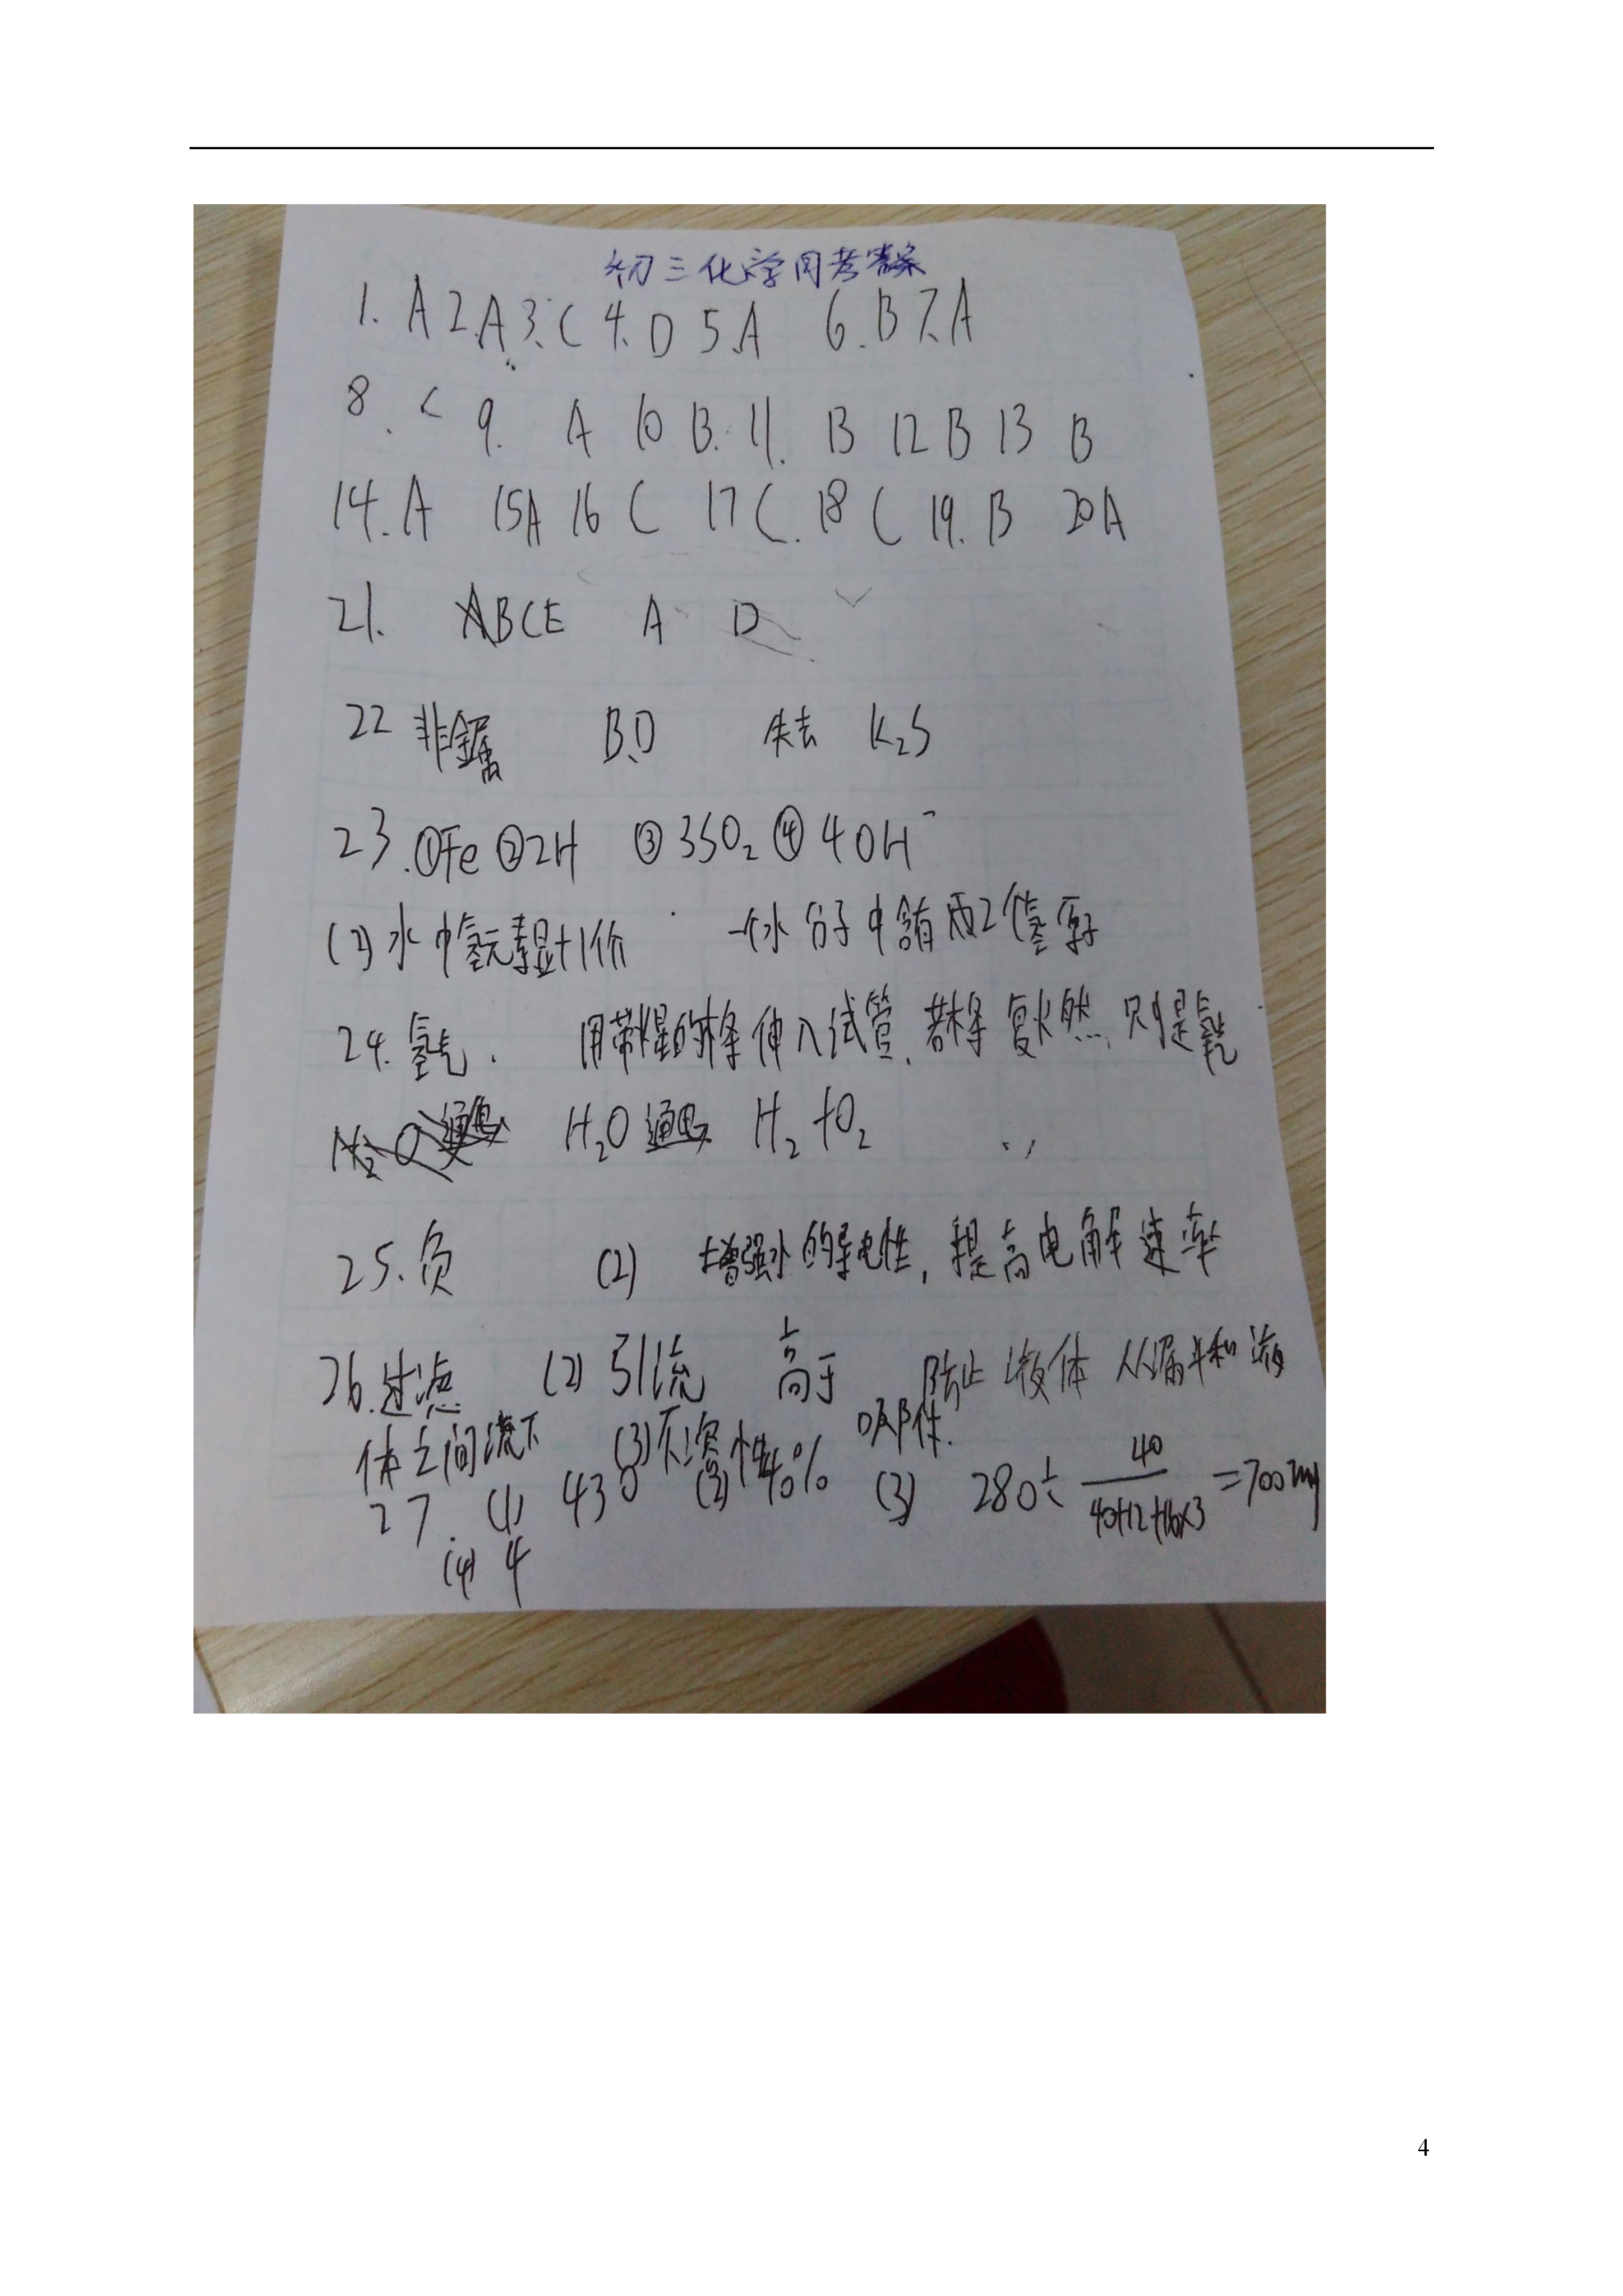 初三化学周考答案
1. A 2. A 3. C 4. D 5. A 6. B 7. A
8. C 9. A 10 B. 11. B 12 B 13 B
14. A 15 A 16 C 17 C. 18 C 19. B 20 A
21. BCE A D
22 非金属 B、D 失去 K₂S
23. ①Fe ②2H ③3SO₂ ④4OH⁻
(2) 水中氢元素显+1价 一个水分子中含有 2个氢原子
24. 氢气. 用带火星的木条伸入试管, 若木条复燃, 则是氧气
H₂O 通电 H₂+O₂
25. 负 (2) 增强水的导电性, 提高电解速率
26. 过滤 (2) 引流 高于 防止液体从漏斗和滤
体之间流下 (3) 不溶性 吸附性.
27. (1) 430 (2) 40% (3) 280÷40/(40+12+16×3)=700mg
(4) 4
4